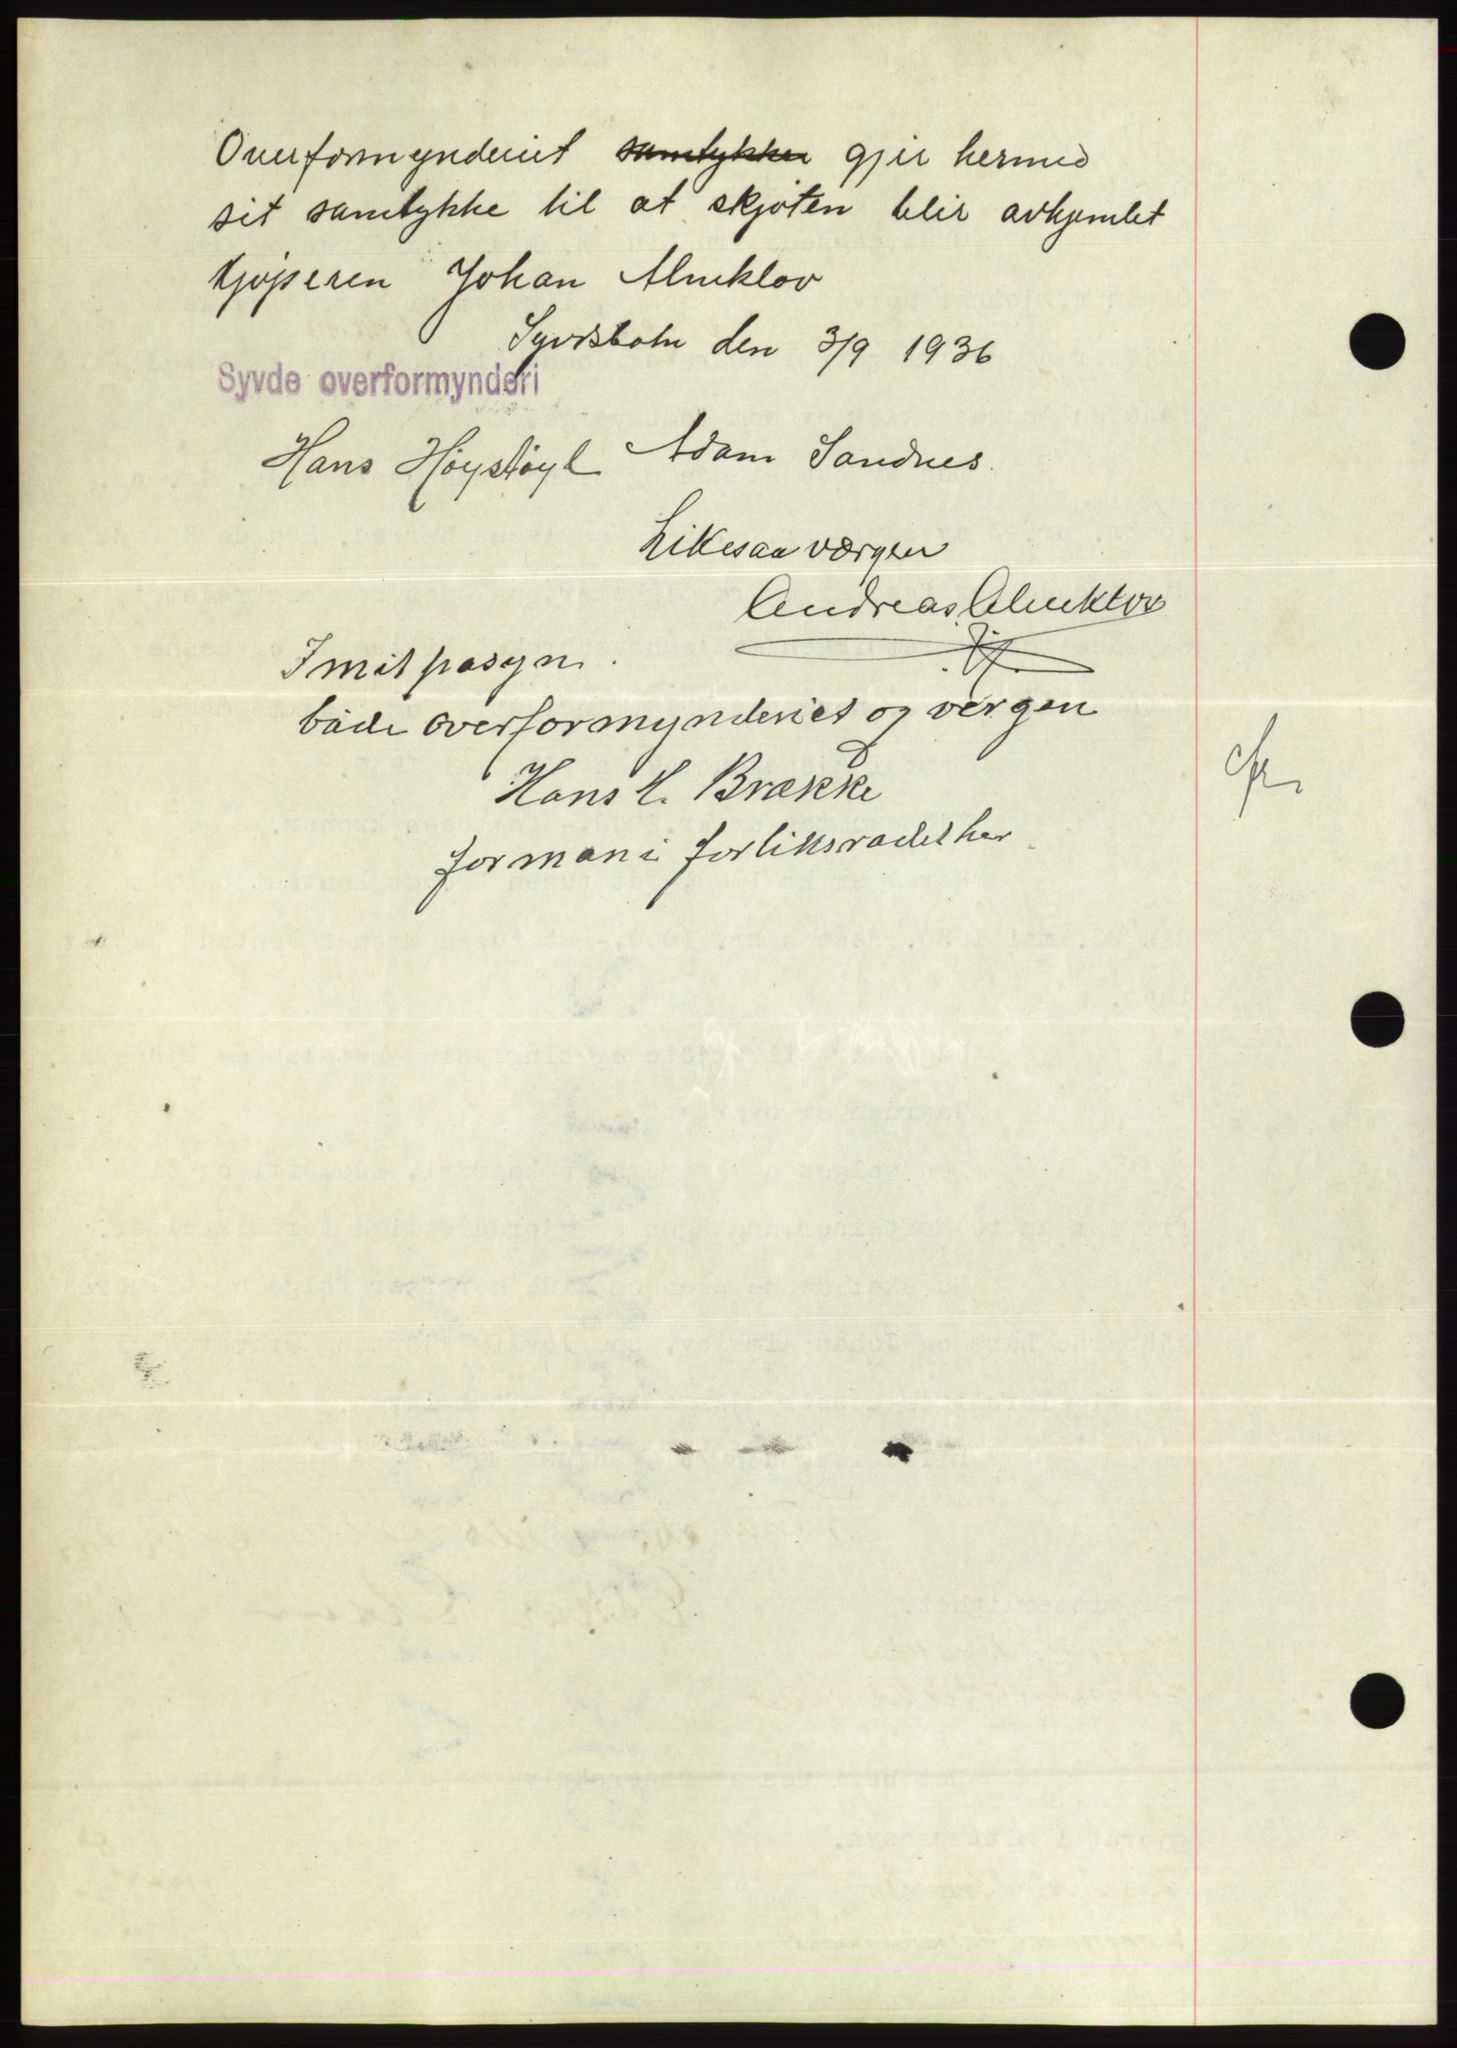 Overformynderiet samtykker gjir hermed
sit samtykke til at skjøten blir avhjemlet
kjøperen Johan Almklov
Syvdsbotn den 3/9 1936
Syvde overformynderi
Hans Høystøyl Adam Sandnes.
Likesaa værgen
Andreas Almklov
I mit påsyn.
både overformynderiet og vergen
Hans H. Brække
forman i forliksradet her